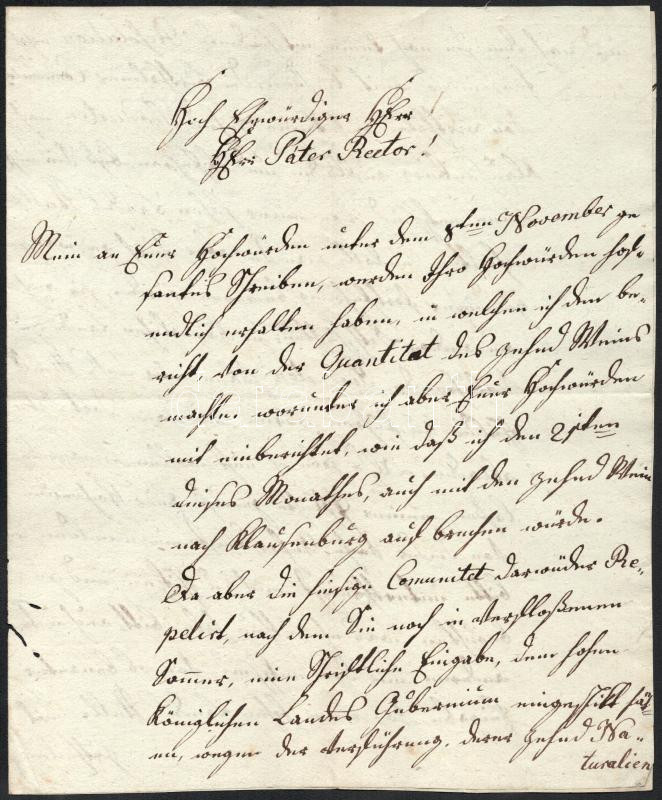 Hoch Ehrwürdiger HErr!
HErr Páter Rector!
Mein an Euer Hochwürden unter dem 8ten November ge
santes Schreiben, werden Ihro Hochwürden hof-
endlich erhalten haben, in welchen ich den be-
richt, von der Quantitat des zehnd Weins
machte. worunter ich aber Euer Hochwürden
mit einberichtet, wie daß ich den 21ten
dieses Monathes, auch mit den zehnd Wein
nach Klausenburg auf brechen würde.
Da aber die hiesige Comunitet darwider Re-
pelirt, nach dem Sie noch in verfloßenen
Sommer, eine Schriftliche Eingabe, dem hohen
Königlichen Landes Gubernium eingeschikt hät-
en, wegen der verführung. derer zehnd Na-
turalien